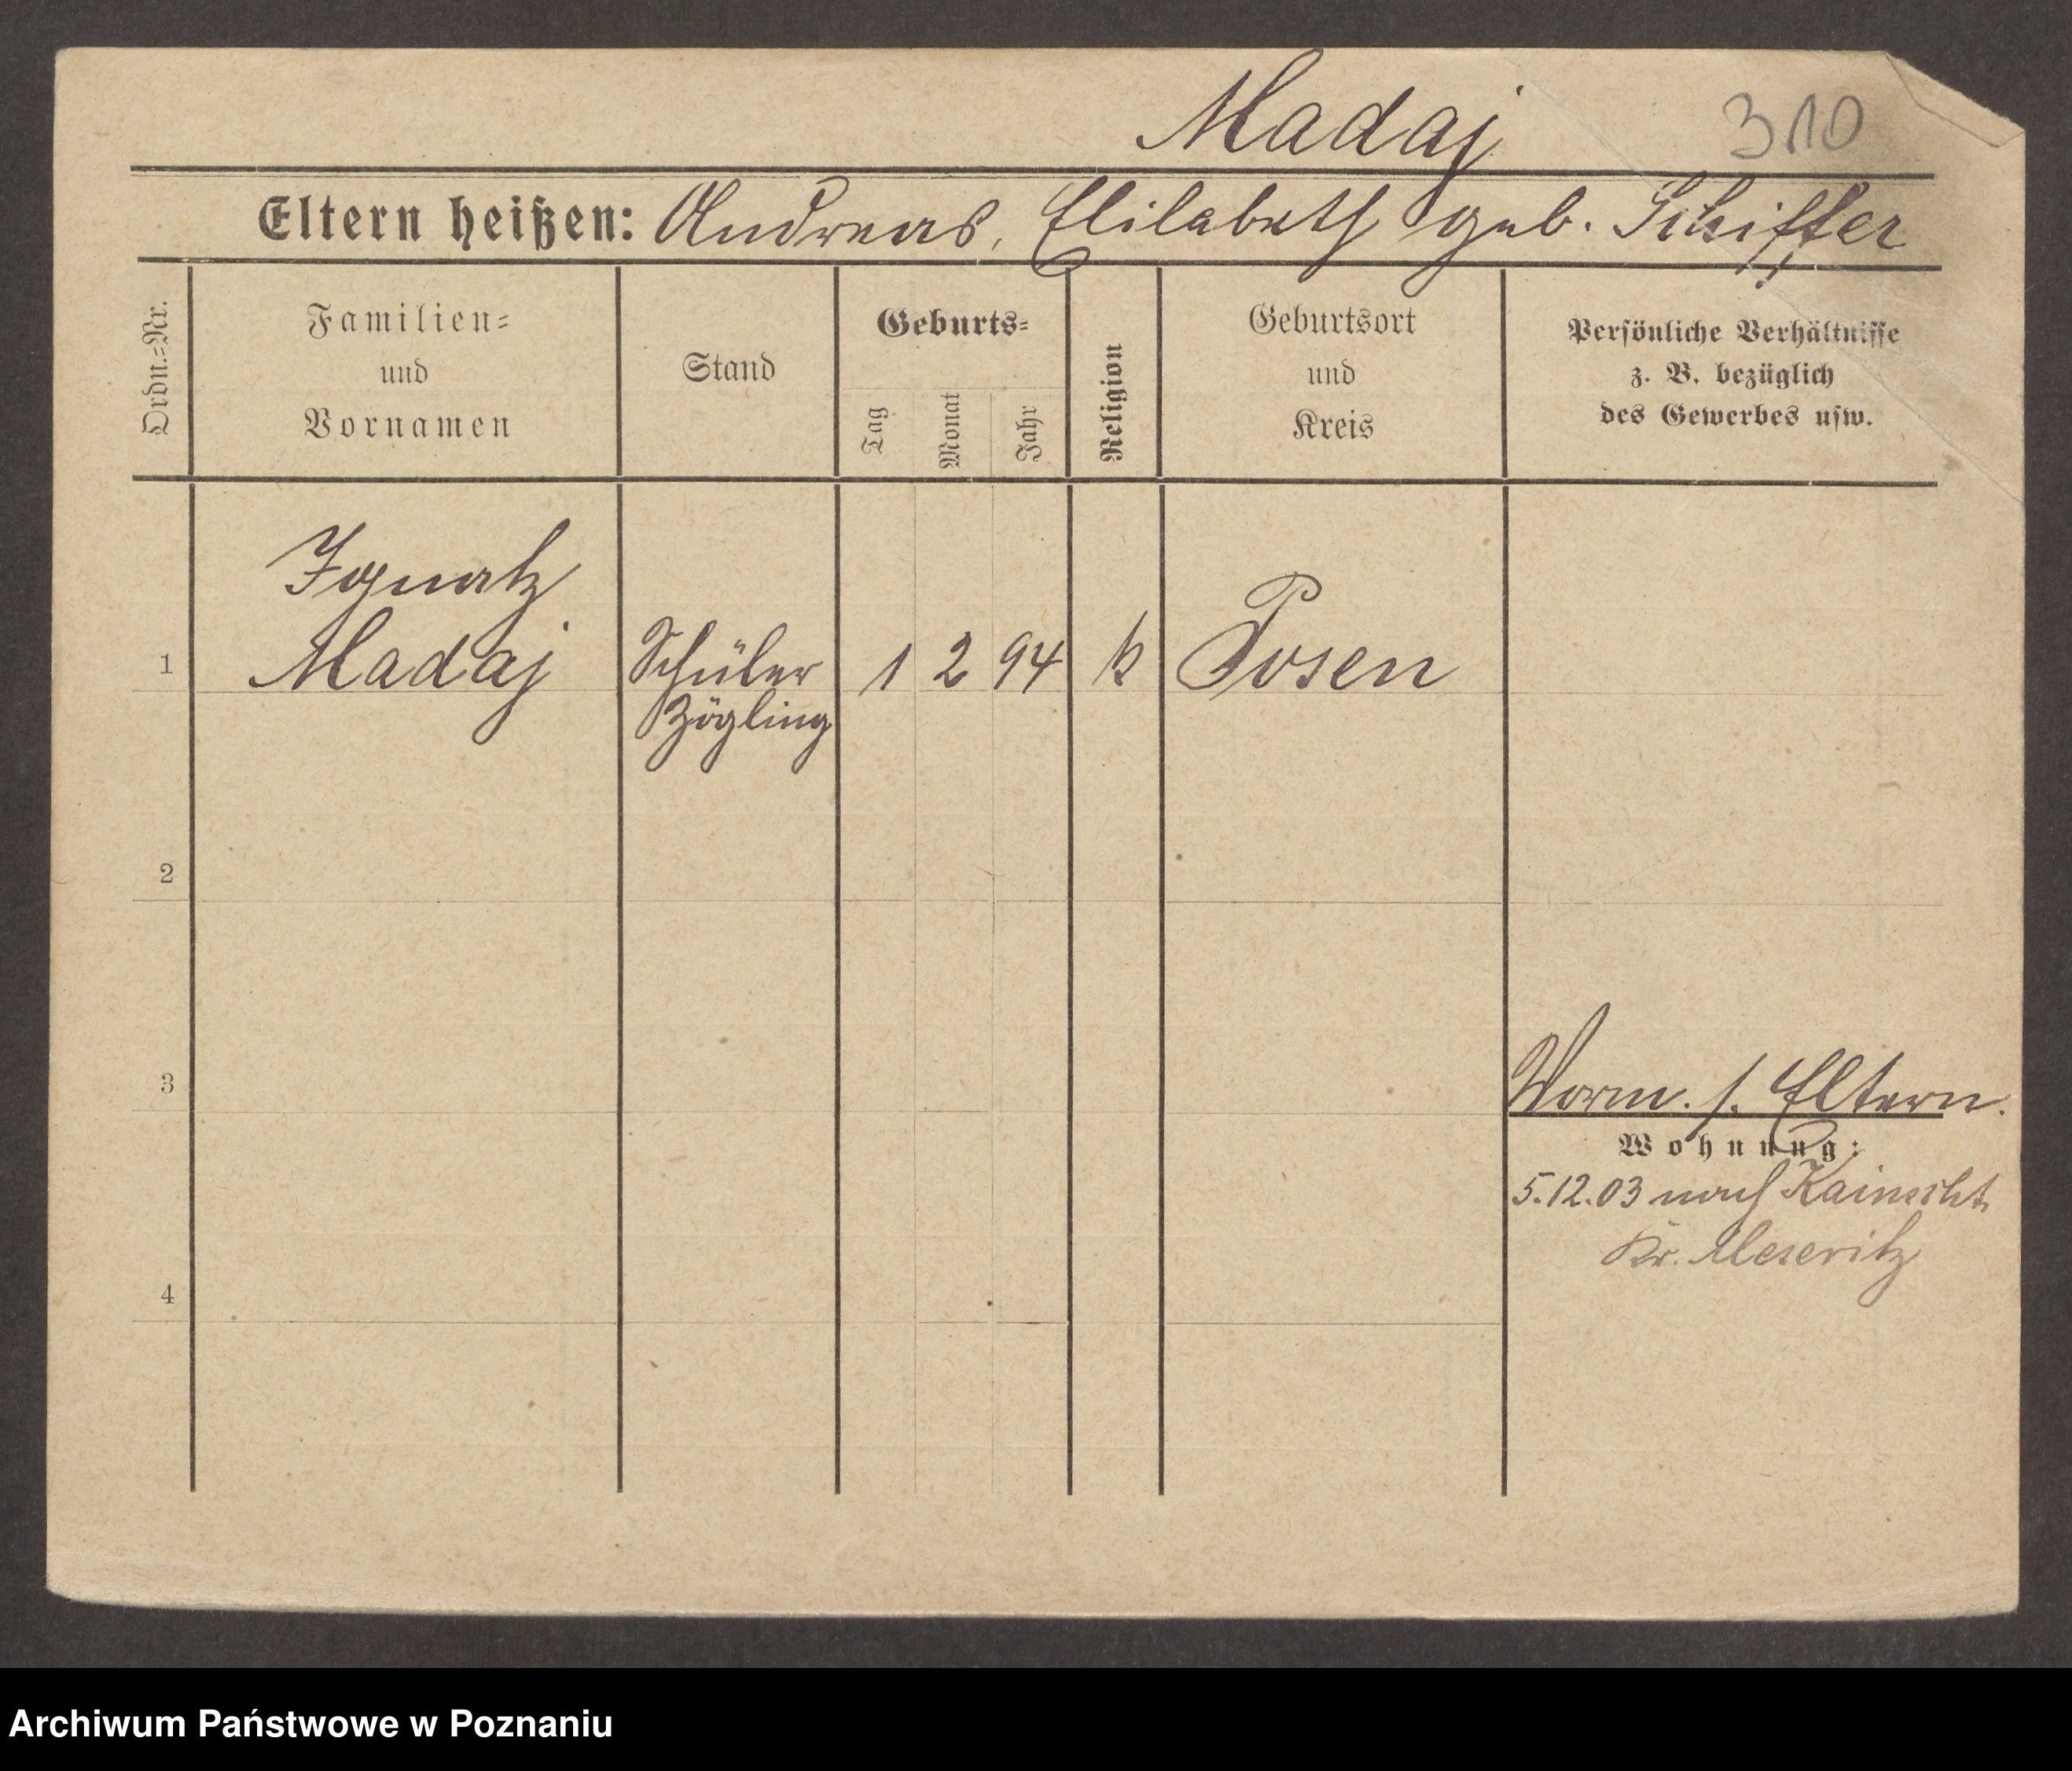 Madaj
310
Eltern heißen: Andreas, Elisabeth geb. Schiffer
Ordn.=Nr.
Familien=
und
Vornamen
Stand
Geburts=
Tag
Monat
Jahr
Religion
Geburtsort
und
Kreis
Persönliche Verhältnisse
z. B. bezüglich
des Gewerbes usw.
Ignatz
1 Madaj Schüler 1 2 94 k Posen
Zögling
2
3
Vorm. s. Eltern.
Wohnung:
5.12.03 nach Kainscht
Kr. Meseritz
4
Archiwum Państwowe w Poznaniu